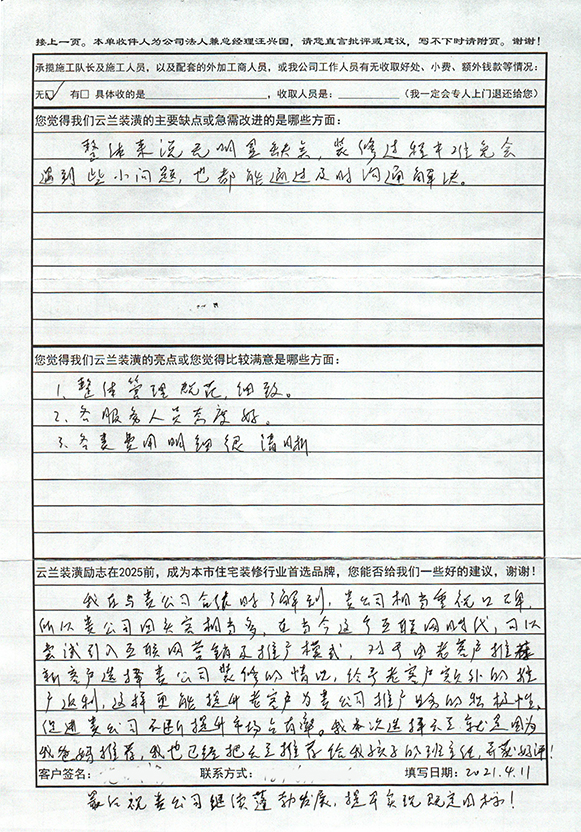 接上一页。本单收件人为公司法人兼总经理汪兴国，请您直言批评或建议，写不下时请附页。谢谢！
承揽施工队长及施工人员，以及配套的外加工商人员，或我公司工作人员有无收取好处、小费、额外钱款等情况：
无☑ 有□ 具体收的是 ，收取人员是： （我一定会专人上门退还给您）
您觉得我们云兰装潢的主要缺点或急需改进的是哪些方面：
整体来说无明显缺点，装修过程中难免会
遇到些小问题，也都能通过及时沟通解决。
您觉得我们云兰装潢的亮点或您觉得比较满意是哪些方面：
1、整体管理规范，细致。
2、各服务人员态度好。
3、各类费用明细很清晰
云兰装潢励志在2025前，成为本市住宅装修行业首选品牌，您能否给我们一些好的建议，谢谢！
我在与贵公司合作时了解到，贵公司相当重视口碑，
所以贵公司回头客相当多，在当今这个互联网时代，可以
尝试引入互联网营销及推广模式，对于由老客户推荐
新客户选择贵公司装修的情况，给予老客户额外的推
广返利，这样更能提升老客户为贵公司推广服务的积极性，
促进贵公司不断提升市场占有率。我本次选择云兰就是因为
我爸妈推荐，我也已经把云兰推荐给我孩子的班主任，并获好评！
客户签名： 联系方式： 填写日期：2021.4.11
最后祝贵公司继续蓬勃发展，提早实现既定目标！